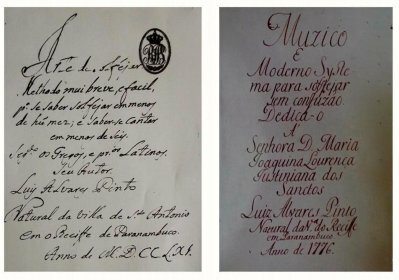 Arte de solfejar
Methodo mui breve, e facil,
pª se saber solfejar em menos
de hũ mez; e saber-se cantar
em menos de seis.
Segº os Gregos, e prºs Latinos.
Seu Autor
Luis Alvares Pinto
Natural da Villa de Stº Antonio
em o Recife de Paranambuco.
Anno de M.D.CC.LXI.
Muzico
E
Moderno Syste
ma para solfejar
sem confuzaõ.
Dedica-o
A'
Senhora D. Maria
Joaquina Lourenca
Justiniana dos
Sanctos
Luiz Alvares Pinto
Natural da Vª do Recife
em Paranambuco.
Anno de 1776.